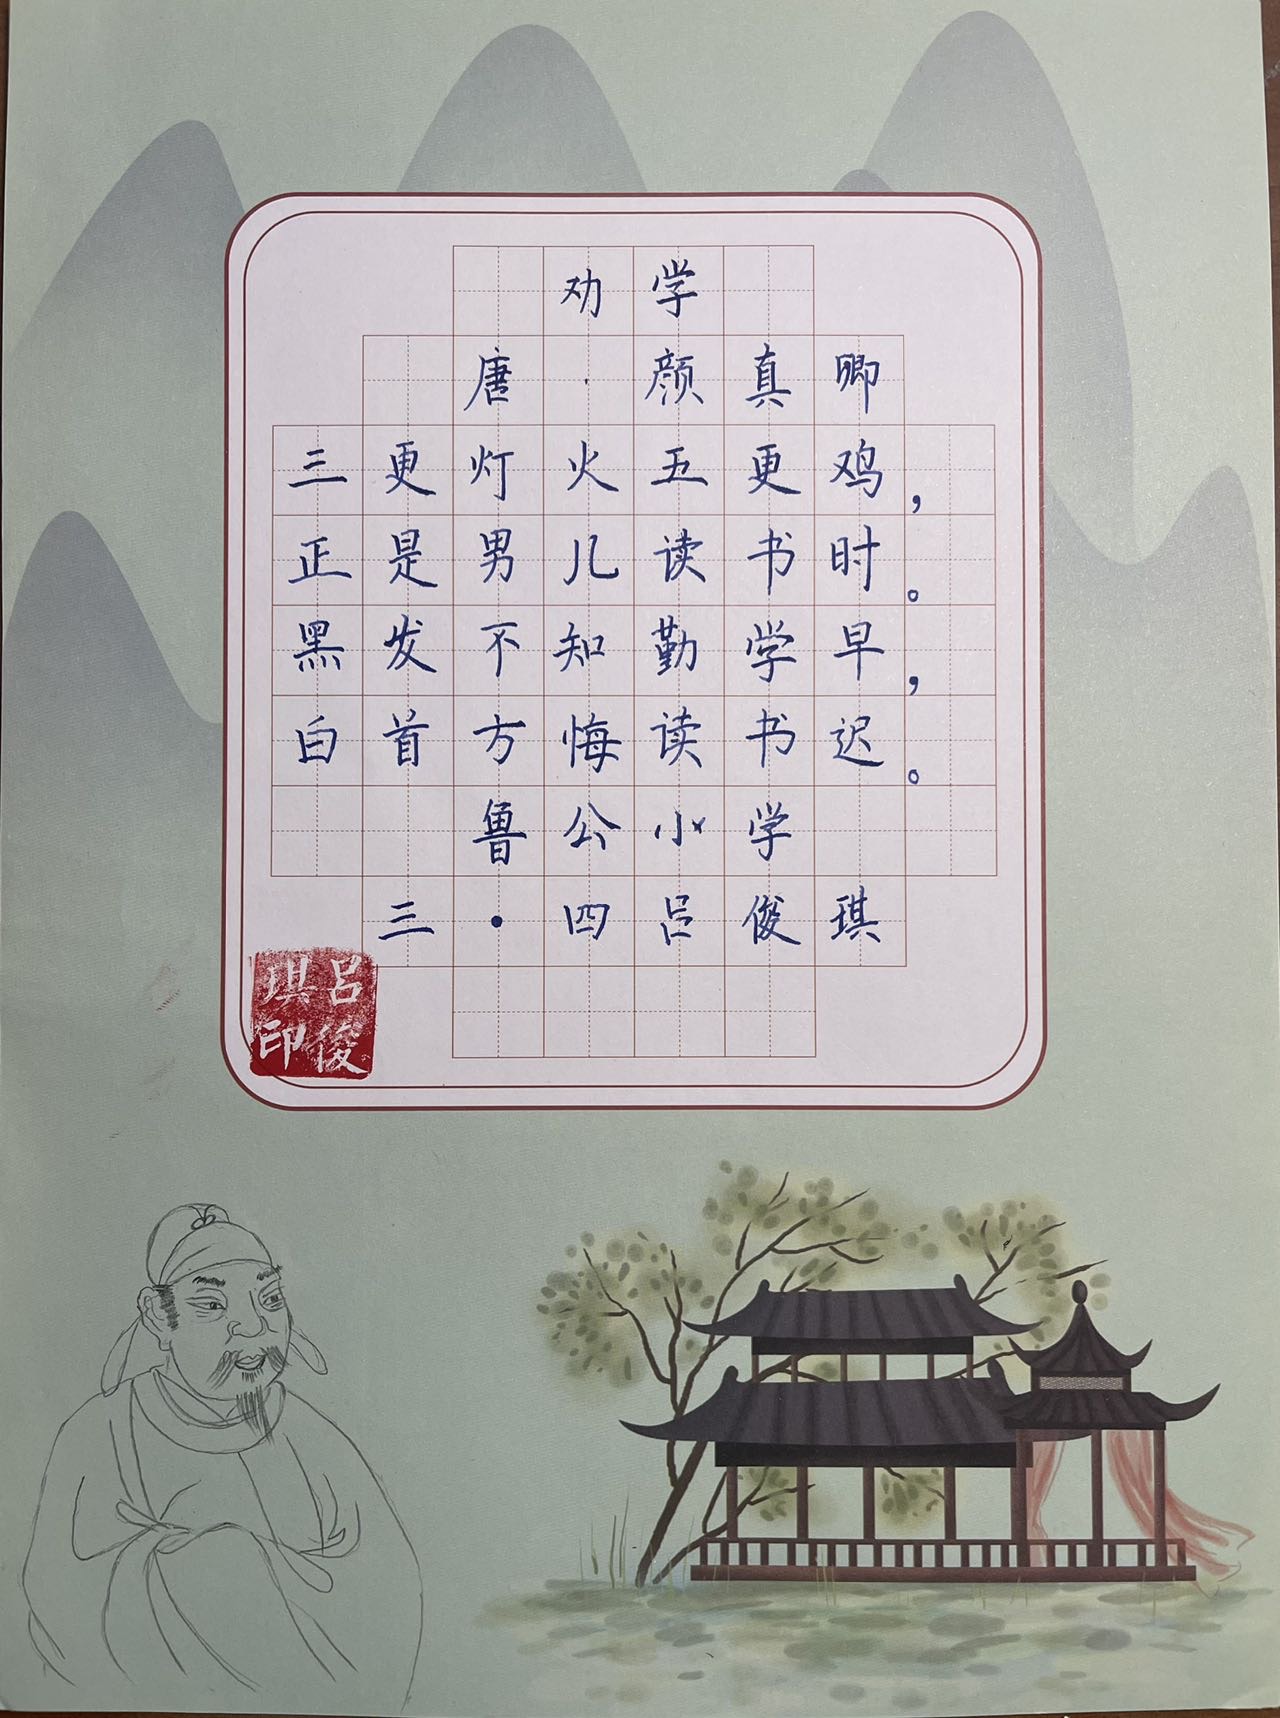 劝学
唐·颜真卿
三更灯火五更鸡，
正是男儿读书时。
黑发不知勤学早，
白首方悔读书迟。
鲁公小学
三·四吕俊琪
吕俊琪印